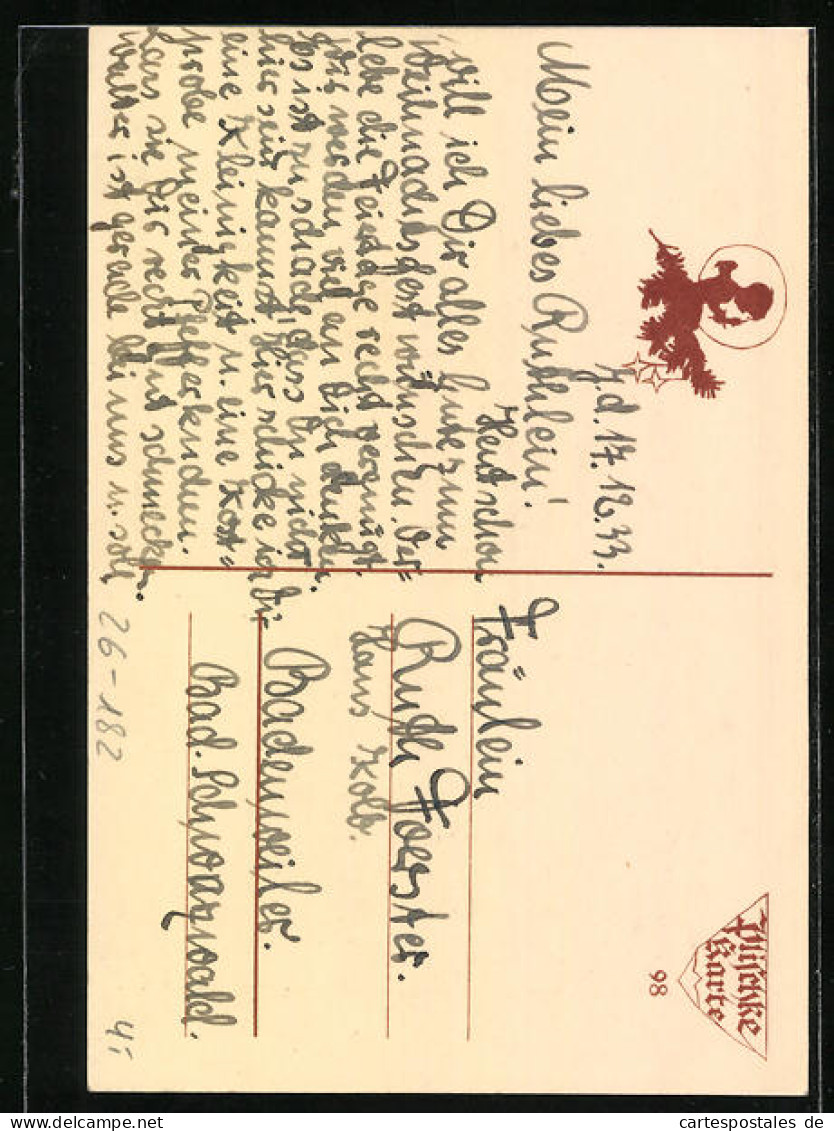 J.d. 17.12.33.
Mein liebes Ruthlein!
Heut schon
will ich Dir alles Gute zum
Weihnachtsfest wünschen. Ver=
lebe die Feiertage recht vergnügt.
Wir werden viel an Dich denken.
Es ist zu schade, dass Du nicht
hier sein kannst. Hier schicke ich Dir
eine Kleinigkeit u. eine Kost=
probe meiner Pfefferkuchen.
Lass sie Dir recht gut schmecken.
ist gerade bei uns u. soll
Plischke
Karte
98
Fräulein
Ruth Foerster.
Haus Kolb.
Badenweiler.
Bad. Schwarzwald.
26-182
cartespostales.de